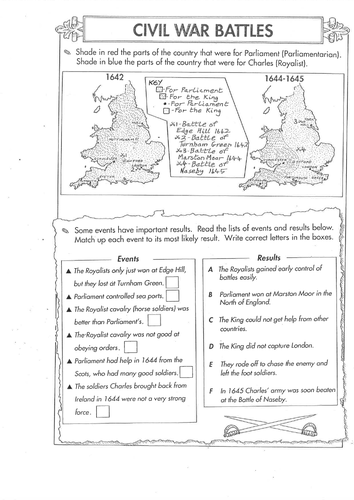 CIVIL WAR BATTLES
Shade in red the parts of the country that were for Parliament (Parliamentarian).
Shade in blue the parts of the country that were for Charles (Royalist).
1642
1644-1645
KEY
-For Parliament
-For the King
-For Parliament
-For the King
X1-Battle of
Edge Hill 1642
X2-Battle of
Turnham Green 1642
X3-Battle of
Marston Moor 1644
X4-Battle of
Naseby 1645
Some events have important results. Read the lists of events and results below.
Match up each event to its most likely result. Write correct letters in the boxes.
Events
▲ The Royalists only just won at Edge Hill,
but they lost at Turnham Green.
▲ Parliament controlled sea ports.
▲ The Royalist cavalry (horse soldiers) was
better than Parliament's.
▲ The Royalist cavalry was not good at
obeying orders.
▲ Parliament had help in 1644 from the
Scots, who had many good soldiers.
▲ The soldiers Charles brought back from
Ireland in 1644 were not a very strong
force.
Results
A The Royalists gained early control of
battles easily.
B Parliament won at Marston Moor in the
North of England.
C The King could not get help from other
countries.
D The King did not capture London.
E They rode off to chase the enemy and
left the foot soldiers.
F In 1645 Charles' army was soon beaten
at the Battle of Naseby.